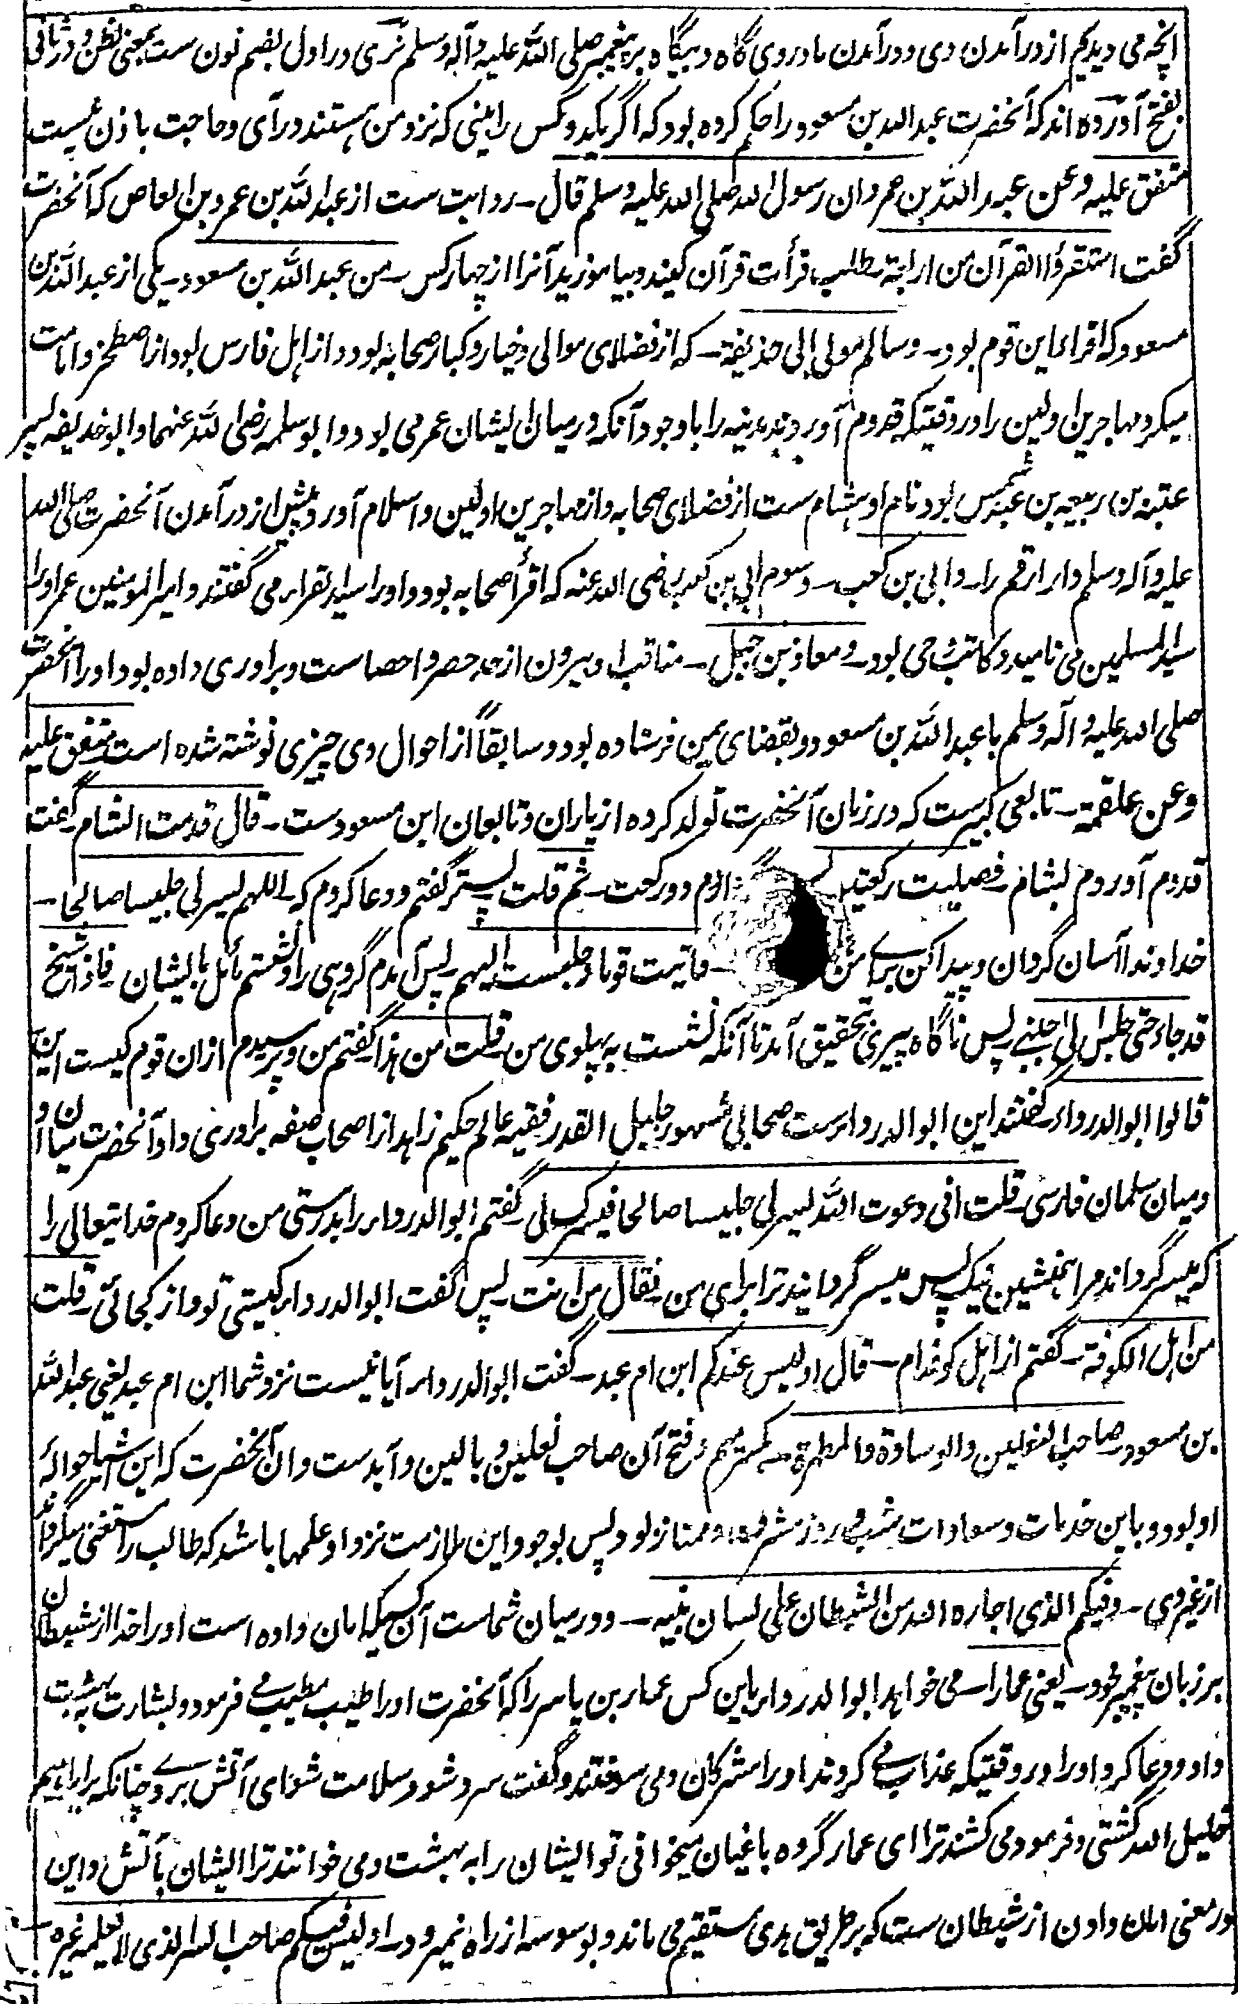 آنچه می دیدیم از درآمدن وی و درآمدن مادر وی گاه و بیگاه بر پیغمبر صلی الله علیه وآله وسلم نری در اول بضم نون ست بمعنی نظن و در ثانی
بفتح آورده اند که آنحضرت عبد الله بن مسعود را حکم کرده بود که اگر یکدو کس را بینی که نزد من هستند درآی و حاجت باذن نیست
متفق علیه وعن عبد الله بن عمرو ان رسول الله صلی الله علیه وسلم قال ـ روایت ست از عبد الله بن عمرو بن العاص که آنحضرت
گفت استقرؤا القرآن من اربعة ـ طلب قرأت قرآن کنید و بیاموزید آنرا از چهار کس ـ من عبد الله بن مسعود ـ یکی از عبد الله بن
مسعود که اقرای این قوم بود ـ وسالم مولی ابی حذیفة ـ که از فضلای موالی و خیار و کبار صحابه بود و از اهل فارس بود از اصطخر و امامت
میکرد مهاجرین اولین را در وقتیکه قدوم آوردند مدینه را با وجود آنکه در میان ایشان عمر می بود و ابو سلمه رضی الله عنهما و ابو حذیفه پسر
عتبه بن ربیعه بن عبد شمس بود نام او هشام ست از فضلای صحابه و از مهاجرین اولین و اسلام آورد پیش از درآمدن آنحضرت صلی الله
علیه وآله وسلم دار ارقم را ـ وابی بن کعب ـ وسوم ابی بن کعب رضی الله عنه که اقرأ صحابه بود و او را سید القراء می گفتند و امیر المومنین عمر او را
سید المسلمین می نامید و کاتب وحی بود ـ ومعاذ بن جبل ـ مناقب او بیرون از حد حصر و احصاست و برادری داده بود او را آنحضرت
صلی الله علیه وآله وسلم با عبد الله بن مسعود و بقضای یمن فرستاده بود و سابقاً از احوال وی چیزی نوشته شده است متفق علیه
وعن علقمة ـ تابعی کبیرست که در زمان آنحضرت تولد کرده از یاران و تابعان ابن مسعودست ـ قال قدمت الشام ـ گفت
قدوم آوردم بشام ـ فصلیت رکعتین ـ دو رکعت ـ ثم قلت ـ پستر گفتم و دعا کردم که ـ اللهم یسر لی جلیسا صالحا ـ
خداوندا آسان گردان و پیدا کن برای من ـ فاتیت قوما وجلست الیهم ـ پس آمدم گروهی را و نشستم مائل بایشان ـ فاذا شیخ
قد جاء حتی جلس الی جنبی ـ پس ناگاه پیری تحقیق آمد تا آنکه نشست به پهلوی من ـ قلت من هذا ـ گفتم من و پرسیدم ازان قوم کیست این
قالوا ابو الدرداء ـ گفتند این ابو الدرداءست صحابی مشهور جلیل القدر فقیه عالم حکیم زاهد از اصحاب صفه برادری داد آنحضرت میان او
و میان سلمان فارسی ـ قلت انی دعوت الله ییسر لی جلیسا صالحا فیسرک لی ـ گفتم ابو الدرداء را بدرستی من دعا کردم خدایتعالی را
که میسر گرداند مرا همنشین نیک پس میسر گردانید ترا برای من ـ فقال من انت ـ پس گفت ابو الدرداء کیستی تو و از کجائی ـ قلت
من اهل الکوفة ـ گفتم از اهل کوفه ام ـ قال اولیس عندکم ابن ام عبد ـ گفت ابو الدرداء آیا نیست نزد شما ابن ام عبد یعنی عبد الله
بن مسعود ـ صاحب النعلین والوسادة والمطهرة ـ بکسر میم و فتح آن صاحب نعلین و بالین و آبدست دان آنحضرت که این اشیا حواله
او بود و باین خدمات و سعادات شب و روز مشرف و ممتاز بود پس بوجود این ملازمت نزد او علمها باشد که طالب را مستغنی میگرداند
از غیر وی ـ وفیکم الذی اجاره الله من الشیطان علی لسان نبیه ـ و در میان شماست آن کسیکه امان داده است او را خدا از شیطان
بر زبان پیغمبر خود ـ یعنی عمارا ـ می خواهد ابو الدرداء باین کس عمار بن یاسر را که آنحضرت او را طیب مطیب می فرمود و بشارت به بهشت
داد و دعا کرد او را در وقتیکه عذاب می کردند او را مشرکان و می سوختند و گفت سرد شو و سلامت شو ای آتش بر وی چنانکه بر ابراهیم
خلیل الله گشتی و فرمود می کشند ترا ای عمار گروه باغیان میخوانی تو ایشان را به بهشت و می خوانند ترا ایشان بآتش و این
در معنی امان دادن از شیطان ست که بر طریق هدی مستقیم می ماند و بوسوسه از راه نمیرود ـ اولیس فیکم صاحب السر الذی لا یعلمه غیره ـ